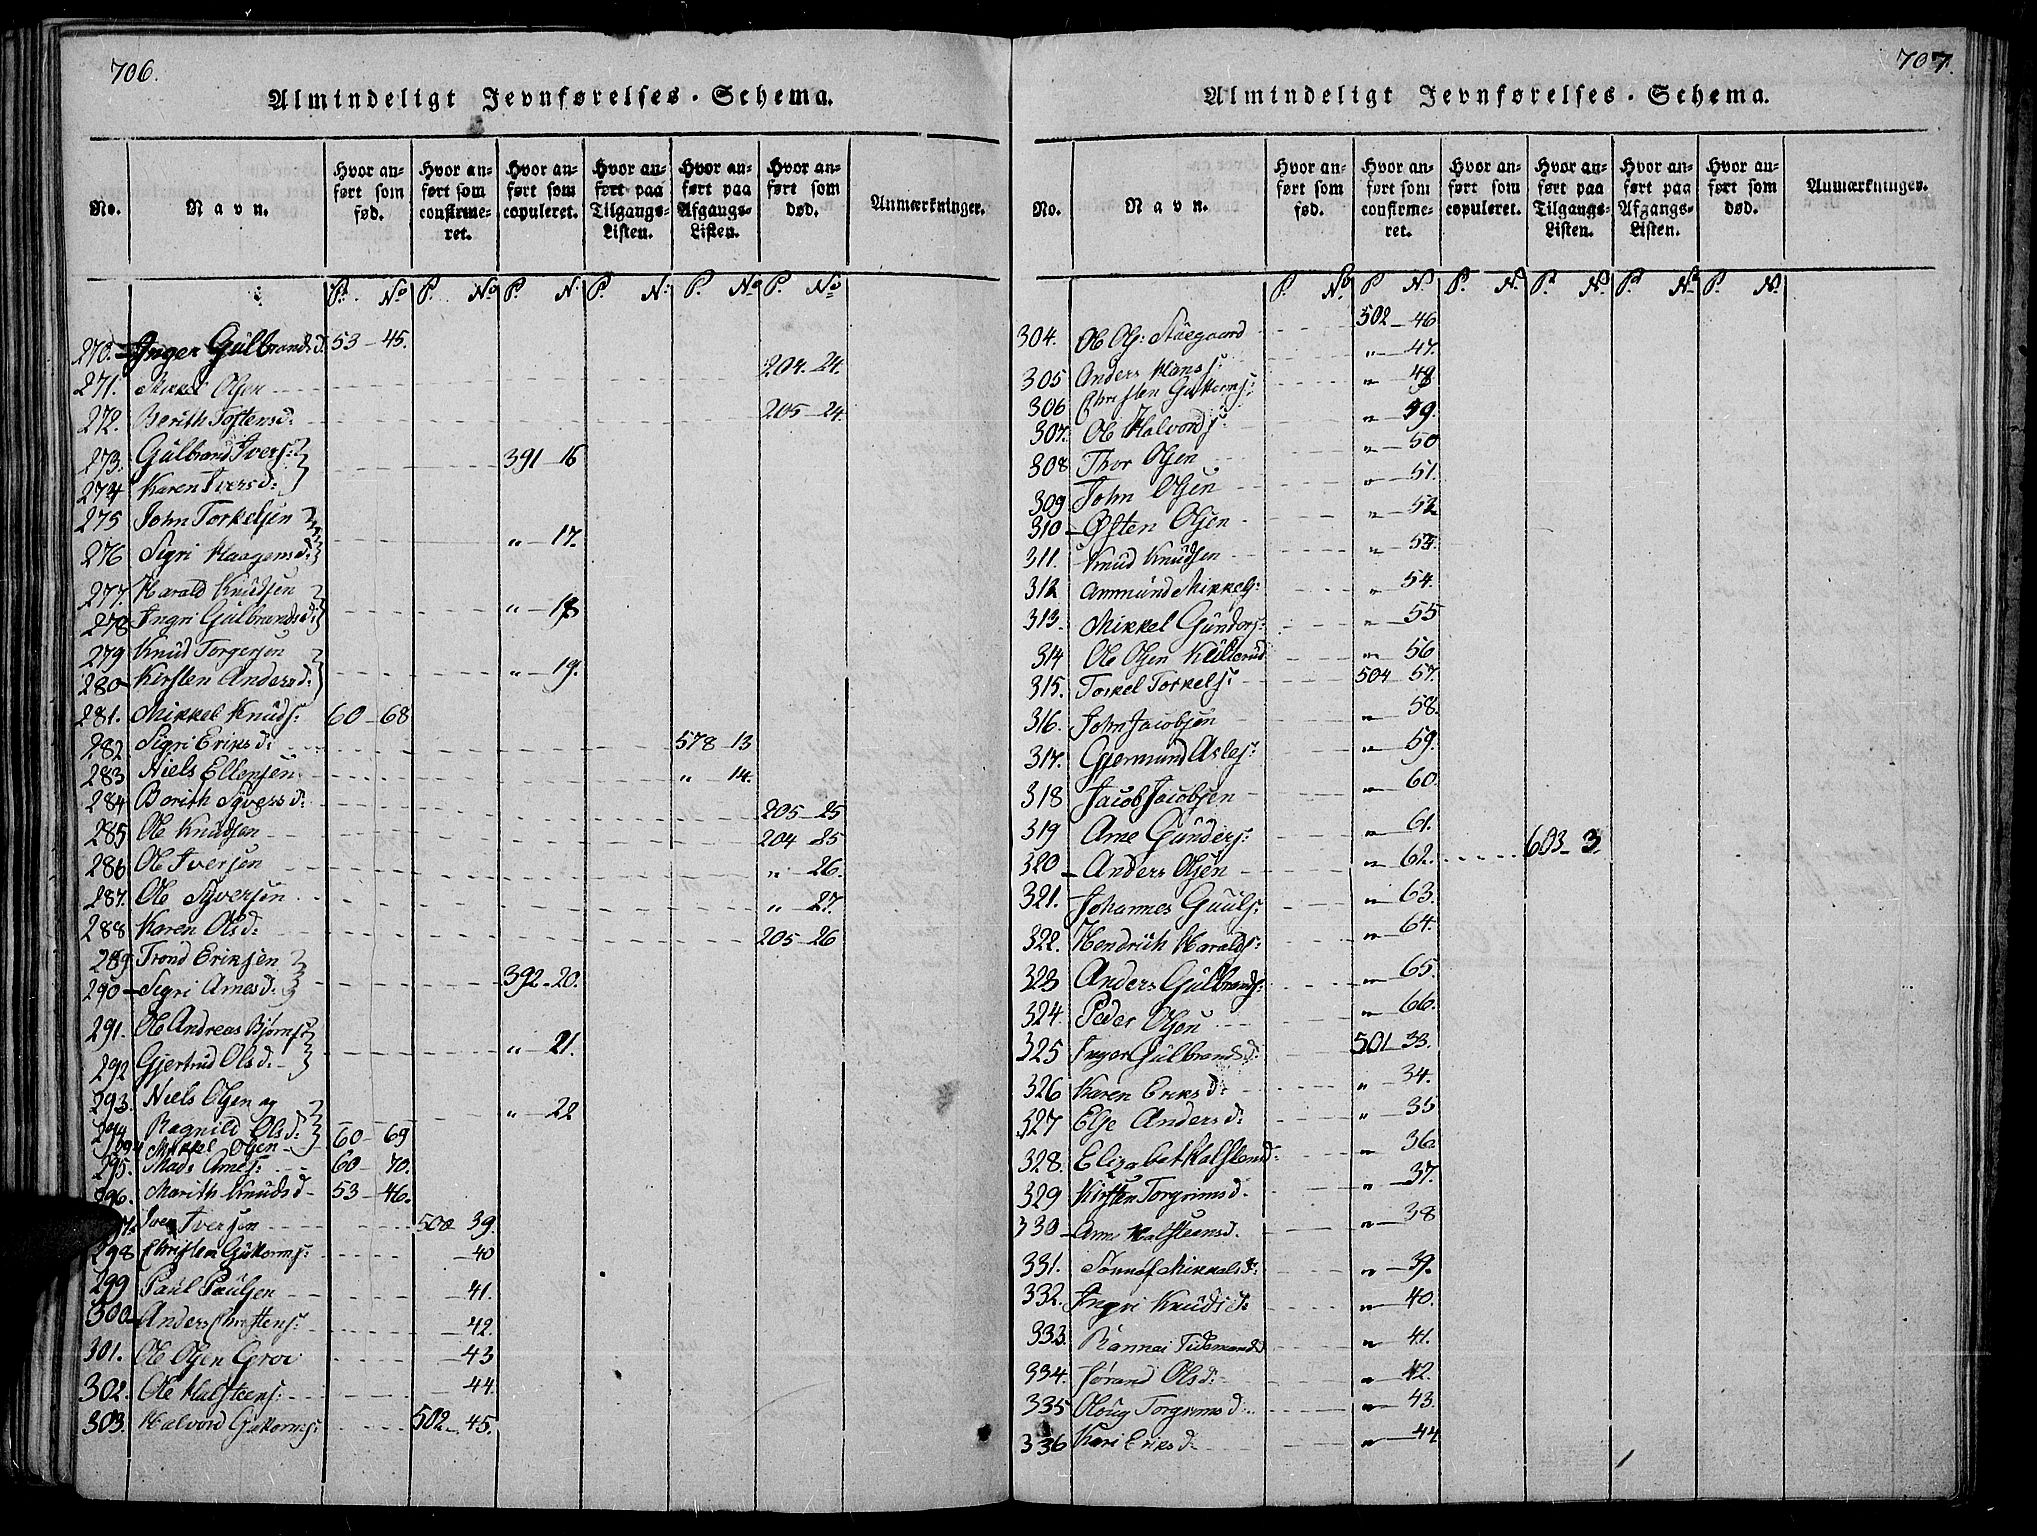 706.
Almindeligt Jevnførelses-Schema.
No.
Navn.
Hvor anført som fød.
Hvor anført som confirmeret.
Hvor anført som copuleret.
Hvor anført paa Tilgangs-Listen.
Hvor anført paa Afgangs-Listen.
Hvor anført som død.
Anmærkninger.
P. No P. No P. N. P. N. P. No P. No
270. Inger Gulbrandsd. 53-45.
271. Mikkel Olsen 204. 24.
272. Berith Toftensd: 205-24
273. Gulbrand Ivers:
274 Karen Iversd: 391-16
275 John Torkelsen
276 Sigri Haagensd: " 17.
277. Harald Knudsen
278 Ingri Gulbrandsd: " 18
279 Knud Torgersen
280 Kirsten Andersd: " 19.
281. Mikkel Knuds: 60-68
282 Sigri Eriksd: 578-13
283 Niels Ellensen " 14.
284 Berith Syversd: 205-25
285 Ole Knudsen 204-25
286 Ole Iversen " 26.
287. Ole Syversen " 27.
288 Karen Olsd: 205-26
289. Trond Eriksen
290 Sigri Arnesd: 392-20.
291. Ole Andreas Bjørns:
292 Gjertrud Olsd: " 21.
293. Niels Olsen og
294 Ragnild Olsd: " 22
294 Mikkel Olsen 60-69
295. Mads Arnes: 60-70.
296. Marith Knudsd 53-46.
Iver Iversen 500 39.
298 Christen Guttorms: 40
299 Paul Paulsen 41.
300 Anders Christens: 42.
301. Ole Olsen Groe 43
302. Ole Halsteens: 44.
303. Halvord Guttorms: 502-45.
707.
Almindeligt Jevnførelses-Schema.
No.
Navn.
Hvor anført som fød.
Hvor anført som confirmeret.
Hvor anført som copuleret.
Hvor anført paa Tilgangs-Listen.
Hvor anført paa Afgangs-Listen.
Hvor anført som død.
Anmærkninger.
P. No. P No P. N. P. No P. No P. No
304. Ole Ols: 502-46
305 Anders Hans: " 47.
306 Christen Guttorms: " 48
307. Ole Halvords: " 49.
308 Thor Olsen " 50
309 John Olsen " 51.
310 Østen Olsen " 52
311. Knud Knudsen " 53.
312 Ammund Mikkels: " 54.
313. Mikkel Gunders: " 55
314 Ole Olsen " 56
315. Torkel Torkels: 504-57.
316. John Jacobsen " 58.
317. Gjermund Asles: " 59.
318 Jacob Jacobsen " 60.
319 Arne Gunders: " 61.
320 Anders Olsen " 62. 603-3
321. Johannes Guuls: " 63.
322. Hendrich Haralds: " 64.
323 Anders Gulbrands: " 65.
324. Peder Olsen " 66.
325 Inger Gulbrandsd: 501-33.
326 Karen Eriksd: " 34.
327 Else Andersd: " 35
328. Elizabet Halstensd: " 36.
329 Kirsten Torgrimsd. " 37.
330 Anne Halsteensd. " 38
331. Sønnøf Mikkelsd: " 39.
332. Ingri Knudsd: " 40.
333. Rannei Tidemansd " 41.
334. Jørand Olsd: " 42.
335 Oloug Torgrimsd: " 43.
336 Kari Eriksd: " 44